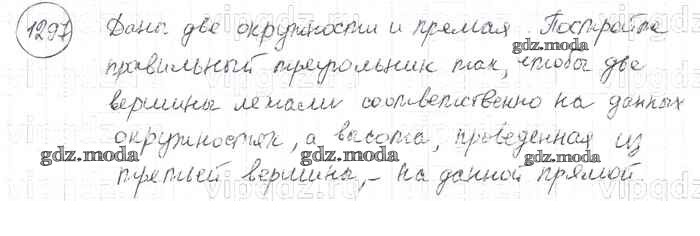 1297 Даны две окружности и прямая. Постройте
правильный треугольник так, чтобы две
вершины лежали соответственно на данных
окружностях, а высота, проведенная из
gdz.moda gdz.moda gdz.moda
третьей вершины, – на данной прямой.
vipgdz.ru